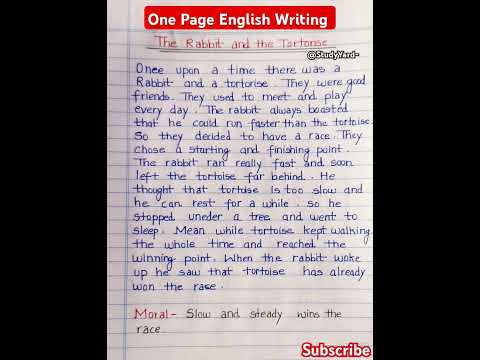 One Page English Writing
The Rabbit and the Tortorise
@StudyYard-
Once upon a time there was a
Rabbit and a tortorise. They were good
friends. They used to meet and play
every day. The rabbit always boasted
that he could run faster than the tortoise.
So they decided to have a race. They
chose a starting and finishing point.
The rabbit ran really fast and soon
left the tortoise far behind. He
thought that tortoise is too slow and
he can rest for a while. so he
stopped uneder a tree and went to
sleep. Mean while tortoise kept walking
the whole time and reached the
winning point. When the rabbit woke
up he saw that tortoise has already
won the rase.
Moral- Slow and steady wins the
race
Subscribe